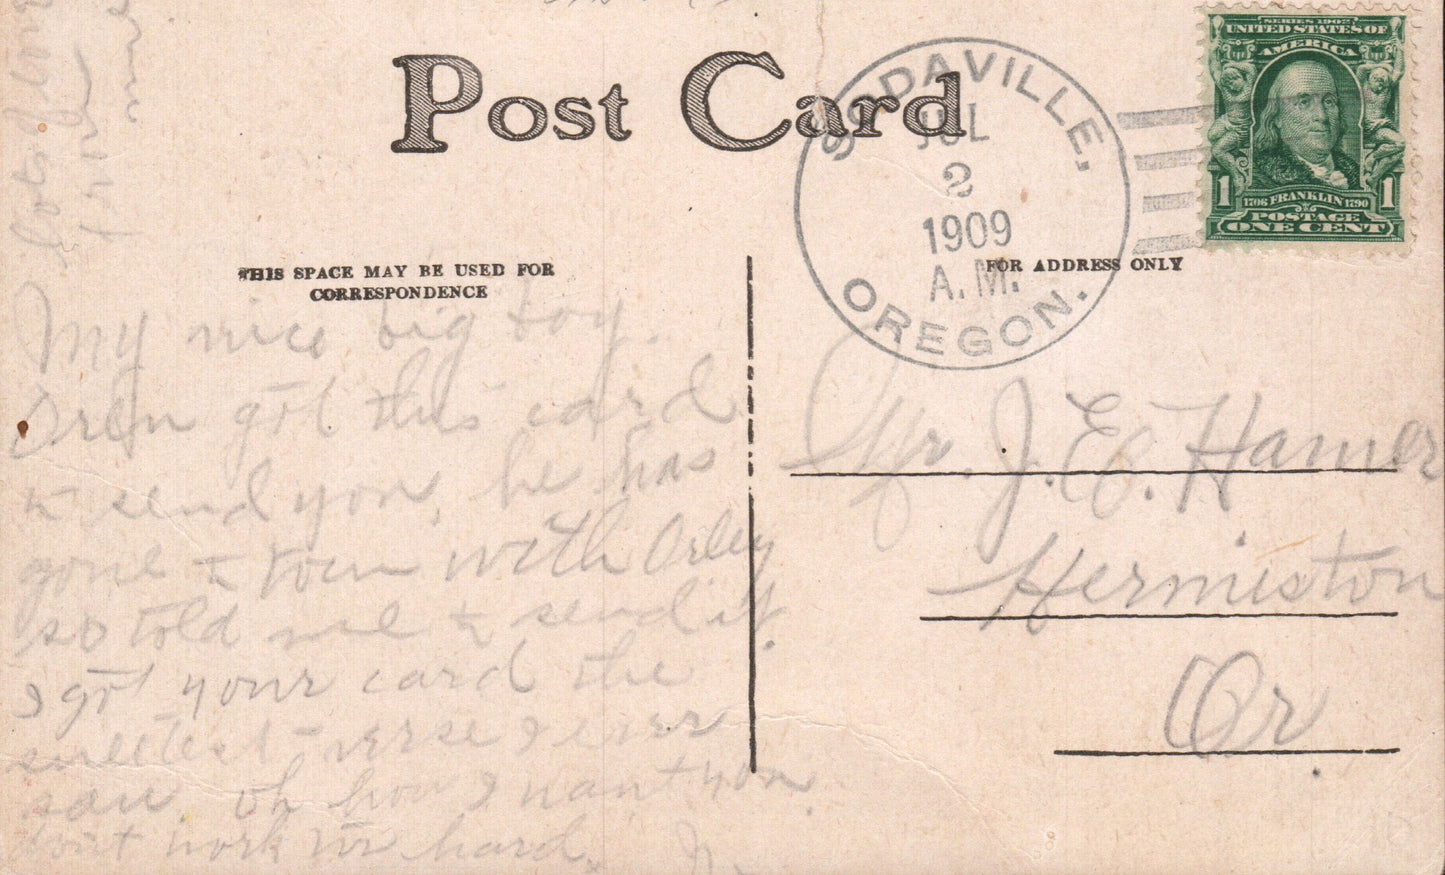 Post Card
SODAVILLE,
JUL
2
1909
A.M.
OREGON.
SERIES 1902
UNITED STATES OF
AMERICA
1 1706 FRANKLIN 1790 1
POSTAGE
ONE CENT
THIS SPACE MAY BE USED FOR
CORRESPONDENCE
FOR ADDRESS ONLY
My nice big boy.
Oren got this card
to send you, he has
gone to town with Orley
so told me to send it.
I got your card the
sweetest verse I ever
saw. Oh how I want you
don't work too hard.
lots of love
from
Mr. J. E. Hamer
Hermiston
Or